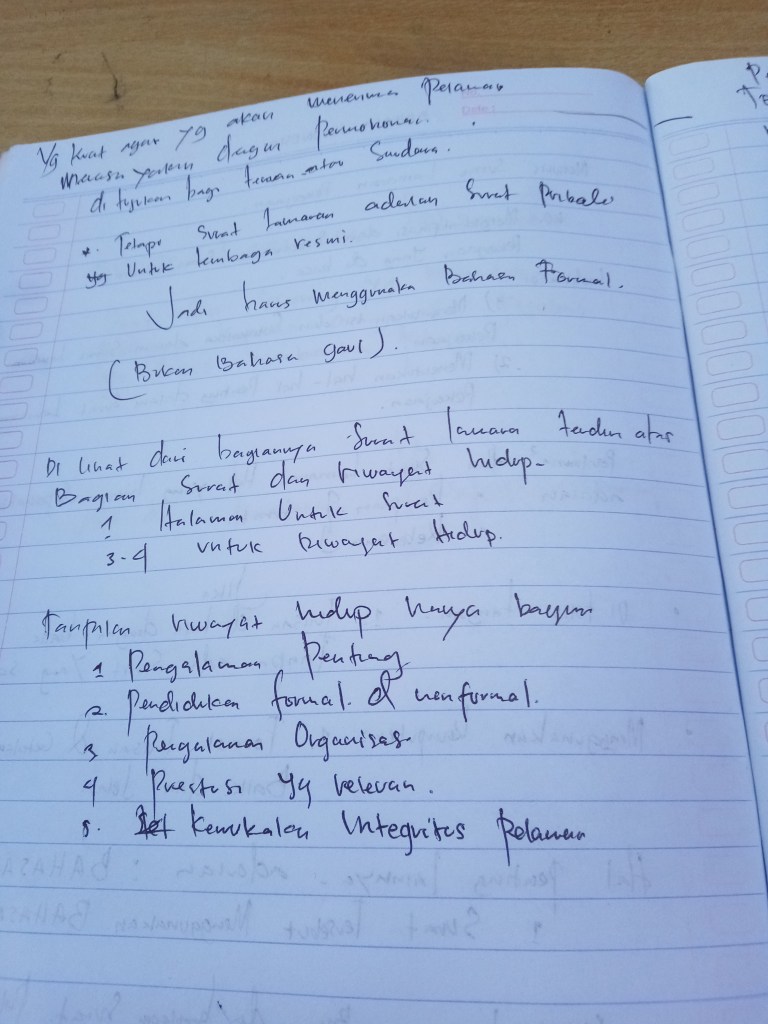 Yg kuat agar yg akan menerima Pelamar
merasa yakin dagan Permohonan.
di tujukan bagi teman atau Saudara.
*. Tetapi Surat Lamaran adalah Surat Pribadi
Untuk lembaga resmi.
Jadi harus menggunaka Bahasa Formal.
(Bukan Bahasa gaul).
Di lihat dari bagiannya Surat lamara terdiri atas
Bagian Surat dan riwayat hidup-
1 Halaman Untuk Surat
3-4 untuk riwayat Hidup.
Tampilan riwayat hidup hanya bagian
1 Pengalaman Penting
2. Pendidikan formal. & nonformal.
3 Pengalaman Organisasi
4 Prestasi yg relevan.
5. Integritas Pelamar